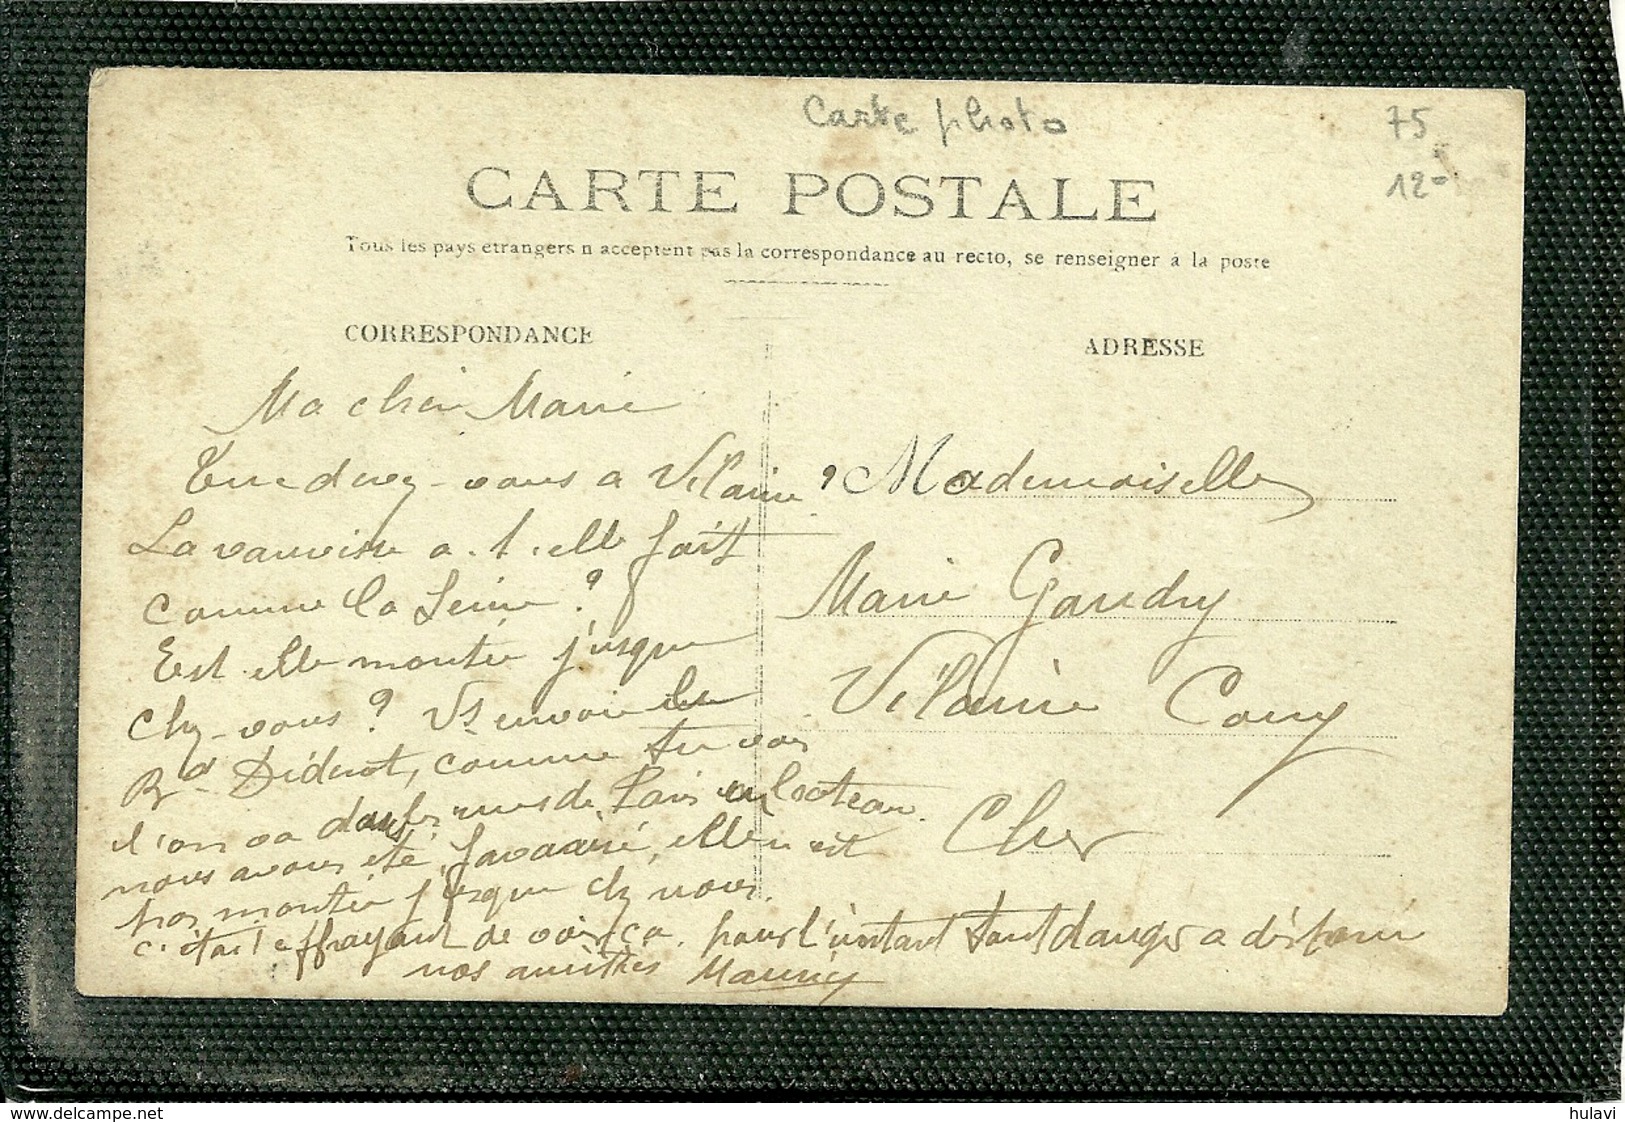 Carte photo
75
12-
CARTE POSTALE
Tous les pays etrangers n acceptent pas la correspondance au recto, se renseigner à la poste
CORRESPONDANCE
Ma cher Marie
vous a Vilaine ?
La a-t-elle fait
comme la Seine ?
Est elle montée jusque
chez-vous ? Vs envoie les
Bd Diderot, comme tu vois
l'on va dans les rues de Paris en bateau.
nous avons été favorisé, elle n est
pas montée jusque chez nous.
c'était effrayant de voir ça. pour l'instant tout danger a disparu
nos amitiés
ADRESSE
Mademoiselle
Marie Gaudry
Vilaine Couy
Cher
delcampe.net
hulavi